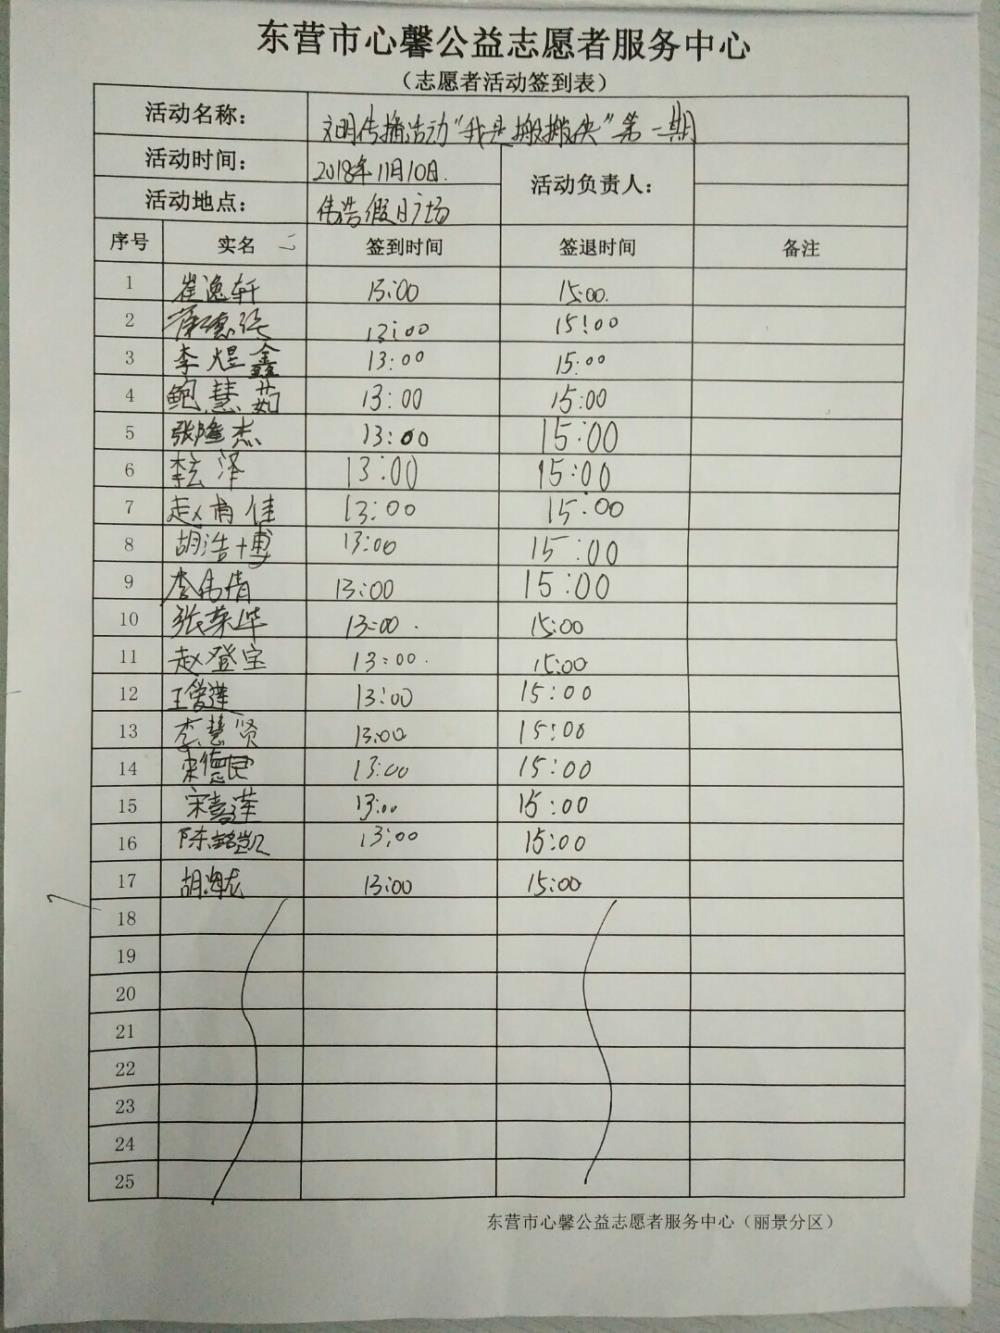 东营市心馨公益志愿者服务中心
（志愿者活动签到表）
活动名称： 文明传播活动“我是搬搬侠”第一期
活动时间： 2018年11月10日. 活动负责人：
活动地点： 伟浩假日广场
序号 实名 签到时间 签退时间 备注
1 崔逸轩 13:00 15:00.
2 13:00 15:00
3 李煜鑫 13:00 15:00
4 鲍慧茹 13:00 15:00
5 张隆杰 13:00 15:00
6 李云泽 13:00 15:00
7 赵 佳 13:00 15:00
8 胡浩博 13:00 15:00
9 李伟倩 13:00 15:00
10 张荣华 13:00. 15:00
11 赵登宝 13:00. 15:00
12 王爱莲 13:00 15:00
13 李慧贤 13:00 15:00
14 宋德民 13:00 15:00
15 宋喜莲 13:00 15:00
16 陈铭凯 13:00 15:00
17 胡海龙 13:00 15:00
18
19
20
21
22
23
24
25
东营市心馨公益志愿者服务中心（丽景分区）